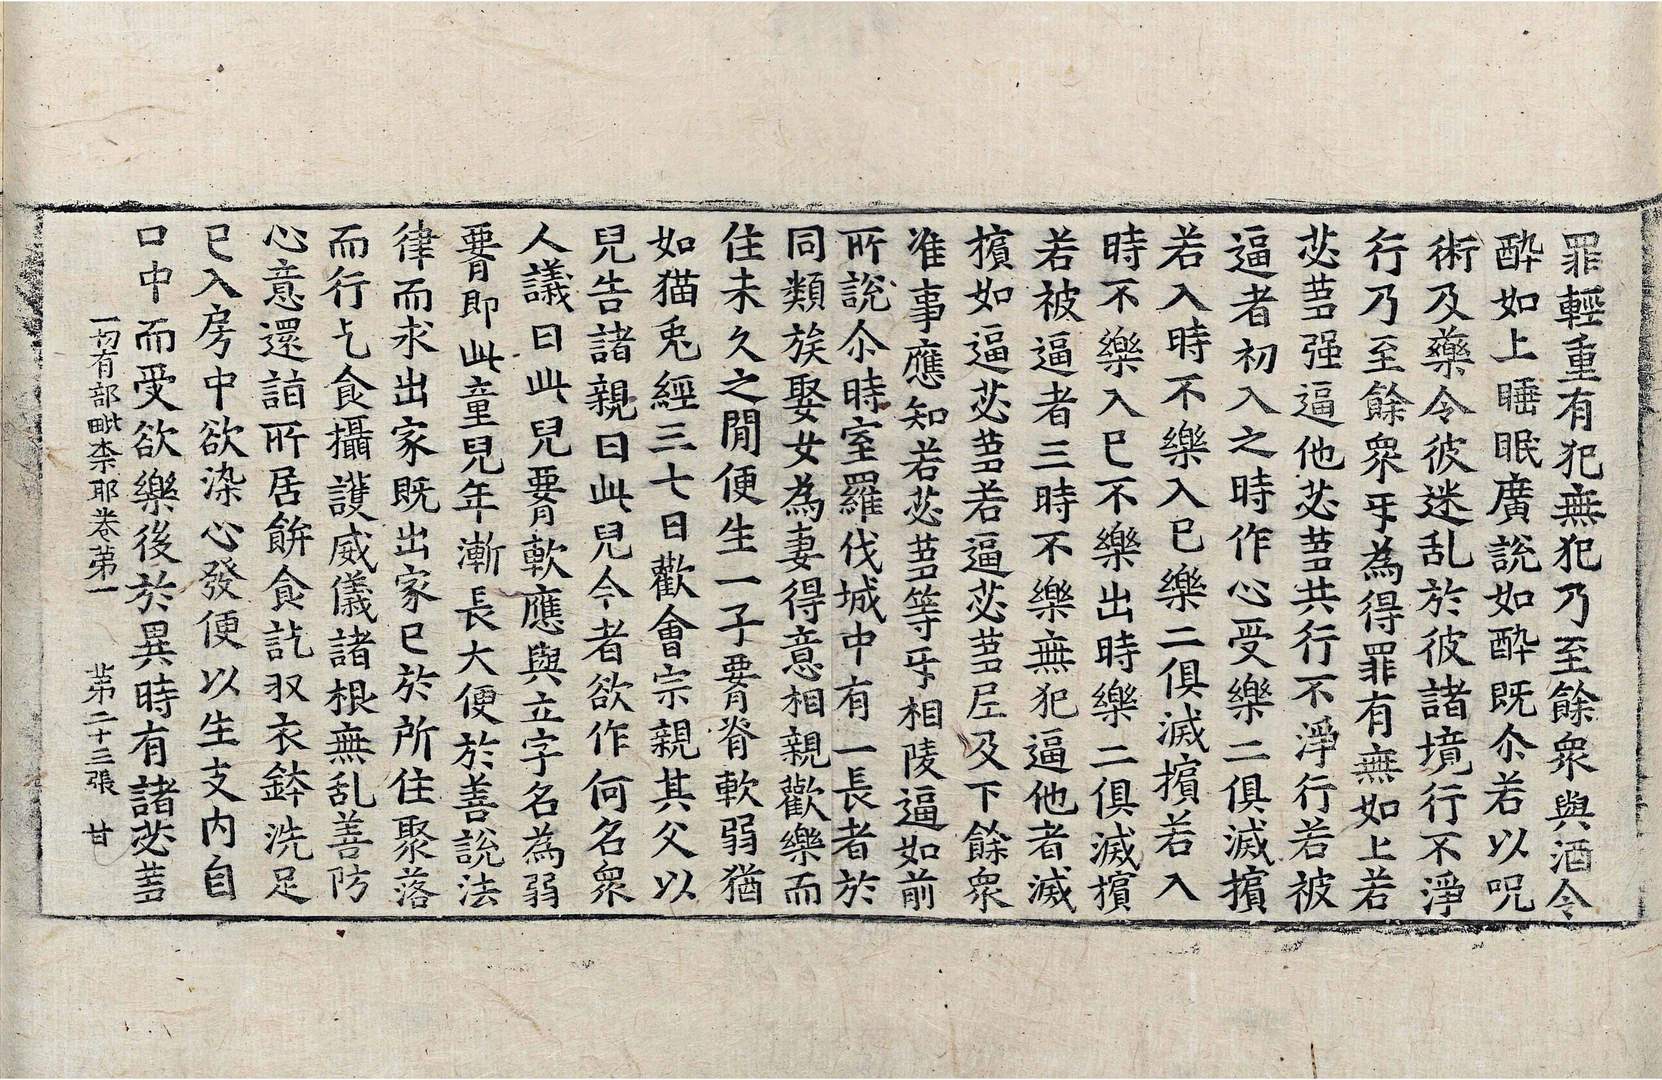 罪輕重有犯無犯乃至餘衆與酒令
醉如上睡眠廣說如醉既尒若以呪
術及藥令彼迷乱於彼諸境行不淨
行乃至餘衆㸦為得罪有無如上若
苾蒭强逼他苾蒭共行不淨行若被
逼者初入之時作心受樂二俱滅擯
若入時不樂入已樂二俱滅擯若入
時不樂入已不樂出時樂二俱滅擯
若被逼者三時不樂無犯逼他者滅
擯如逼苾蒭若逼苾蒭尼及下餘衆
准事應知若苾蒭等㸦相陵逼如前
所說尒時室羅伐城中有一長者於
同類族娶女為妻得意相親歡樂而
住未久之閒便生一子腰脊軟弱猶
如猫兎經三七日歡會宗親其父以
兒告諸親曰此兒今者欲作何名衆
人議曰此兒腰軟應與立字名為弱
腰即此童兒年漸長大便於善說法
律而求出家既出家已於所住聚落
而行乞食攝護威儀諸根無乱善防
心意還詣所居餅食訖収衣鉢洗足
已入房中欲染心發便以生支內自
口中而受欲樂後於異時有諸苾蒭
一切有部毗柰耶卷第一 第二十三張 甘